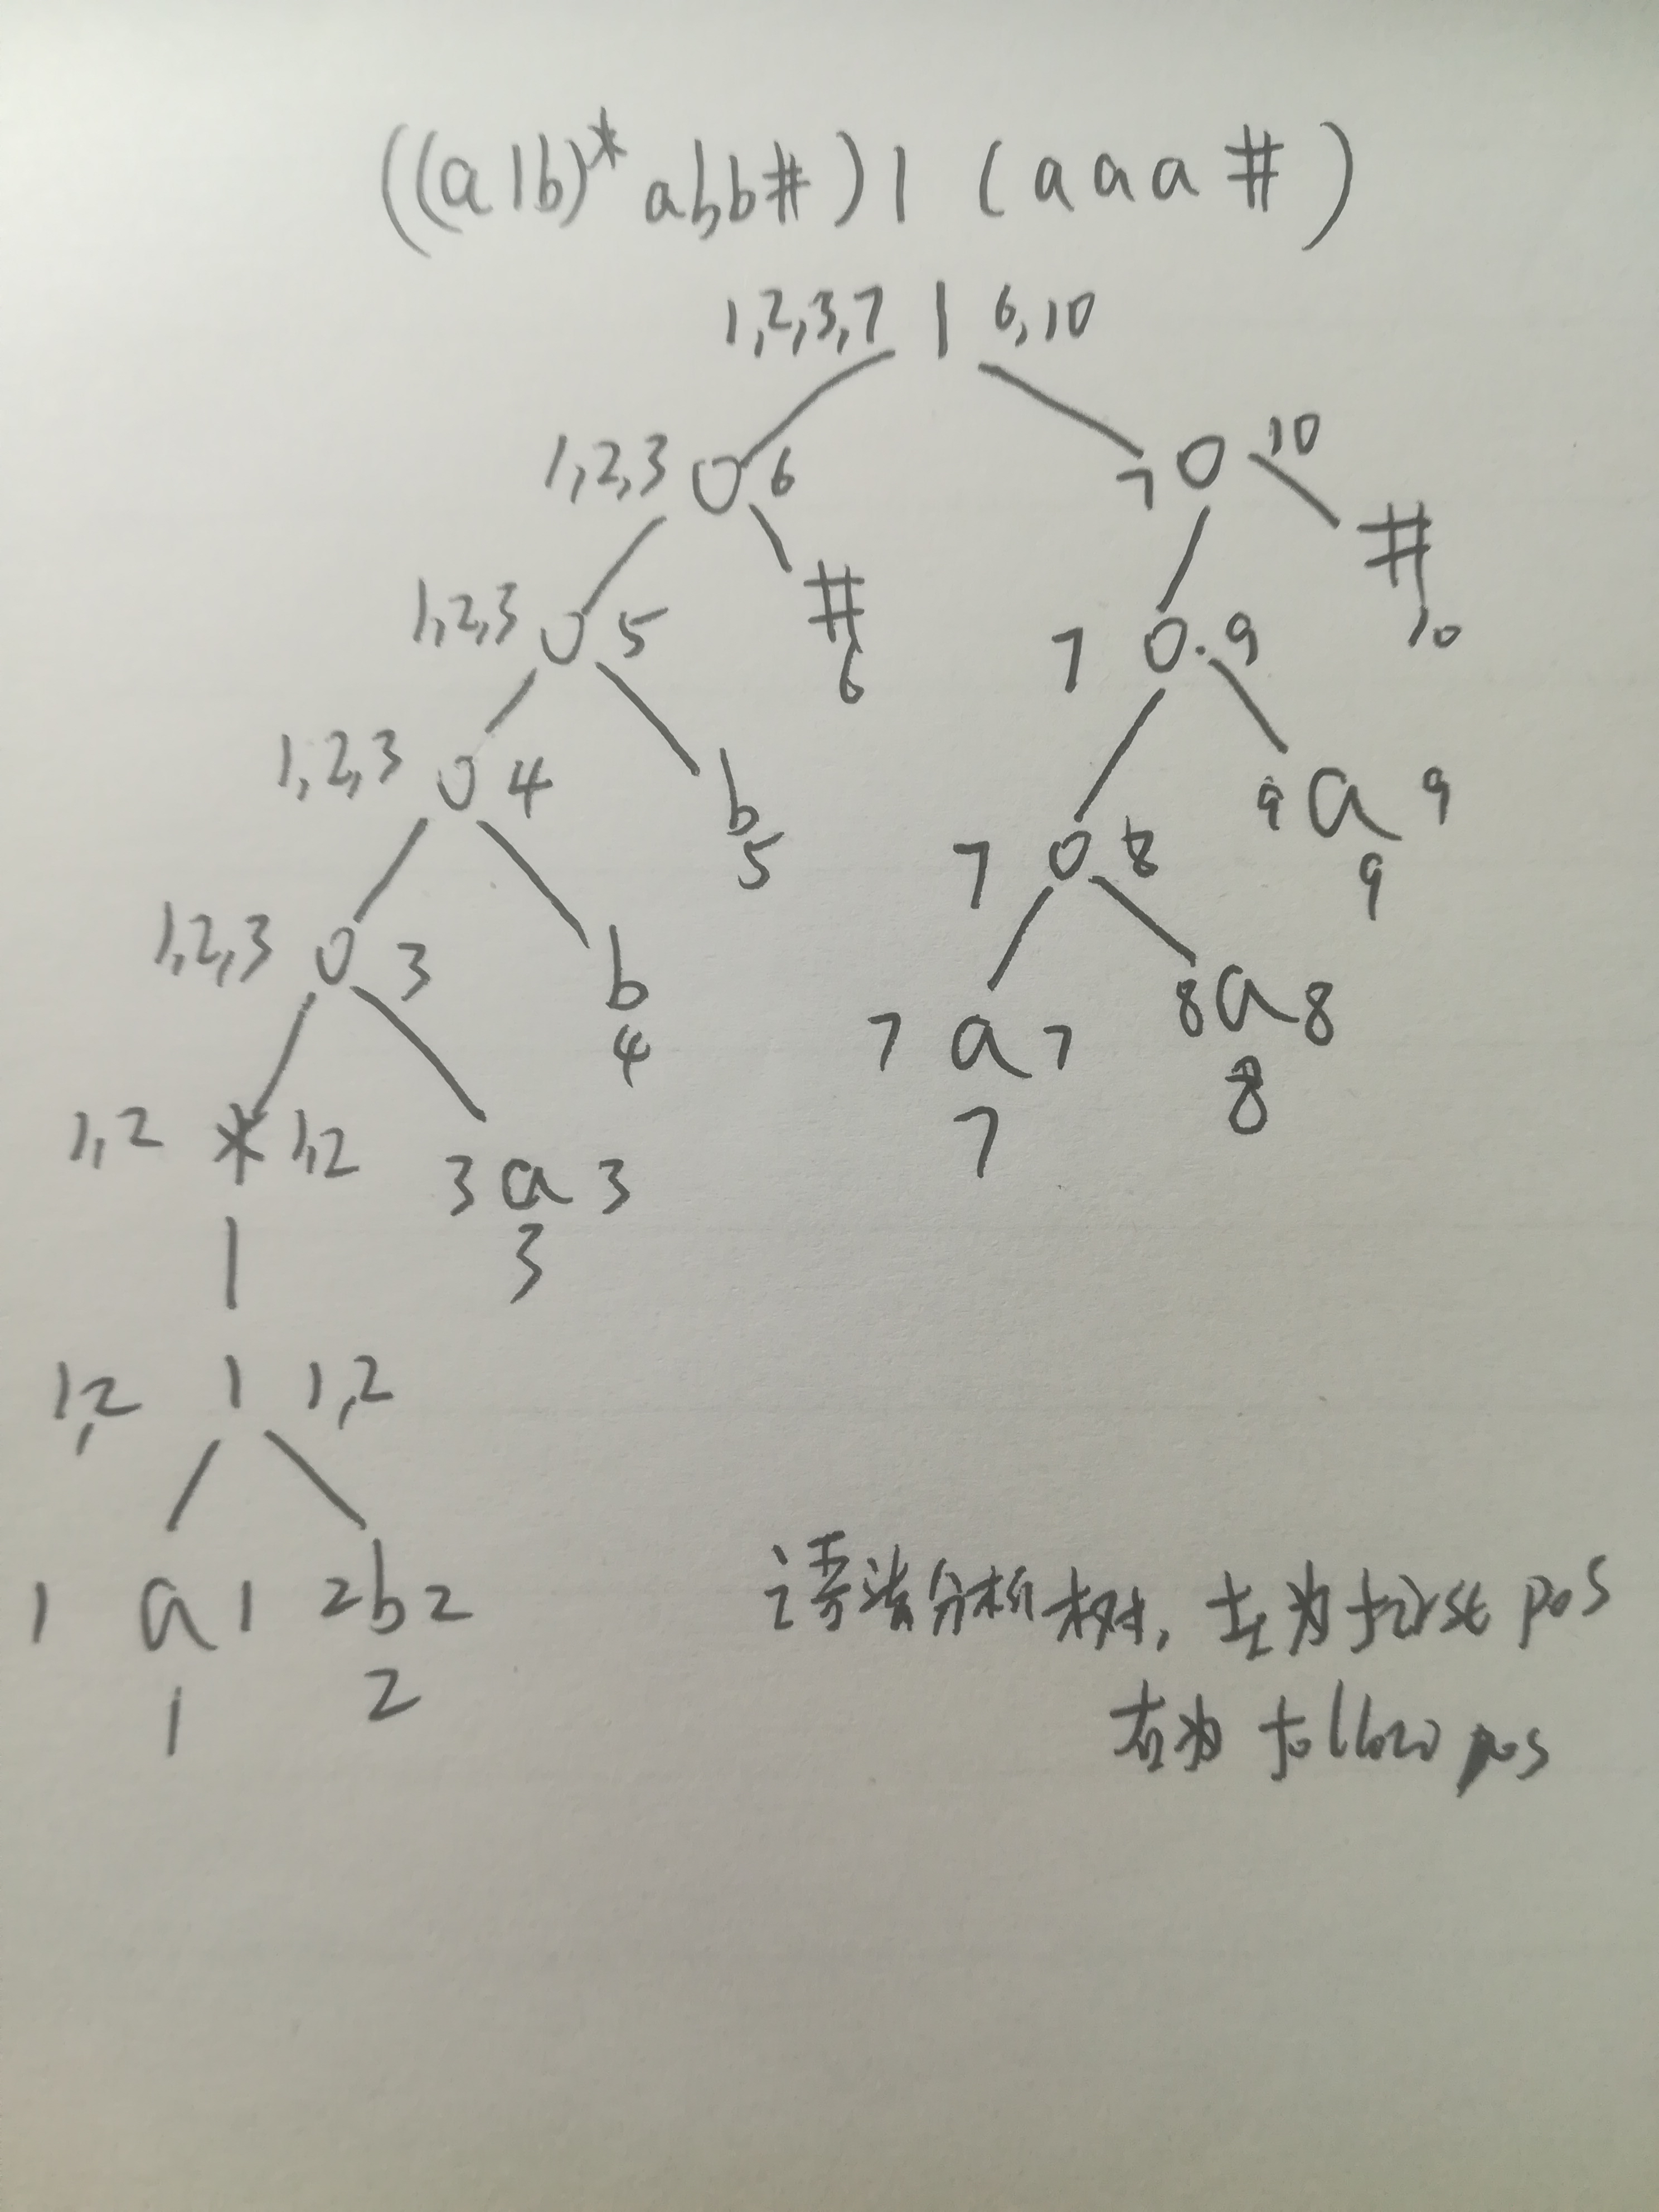 ((a|b)*abb#)|(aaa#)
1,2,3,7 | 6,10
1,2,3 O 6
7 O 10
#
6
#
10
1,2,3 O 5
7 O 9
1,2,3 O 4
b
5
9 a 9
9
7 O 8
1,2,3 O 3
b
4
7 a 7
7
8 a 8
8
1,2 * 1,2
3 a 3
3
1,2 | 1,2
1 a 1
1
2 b 2
2
语法分析树, 左为first pos
右为 follow pos